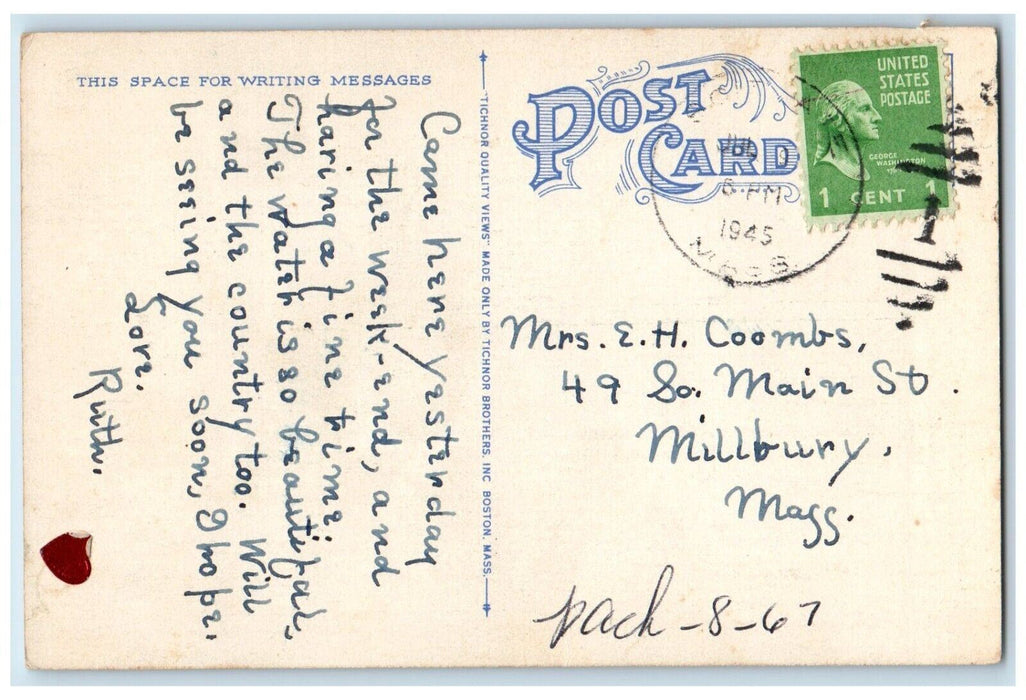 THIS SPACE FOR WRITING MESSAGES
Came here yesterday
for the week-end, and
having a fine time.
The water is so beautiful,
and the country too. Will
be seeing you soon, I hope.
Love.
Ruth.
"TICHNOR QUALITY VIEWS" MADE ONLY BY TICHNOR BROTHERS, INC BOSTON, MASS.
POST
CARD
JUL
PM
1945
MASS.
UNITED
STATES
POSTAGE
GEORGE
WASHINGTON
1 CENT 1
Mrs. E. H. Coombs,
49 So. Main St.
Millbury,
Mass.
-8-67